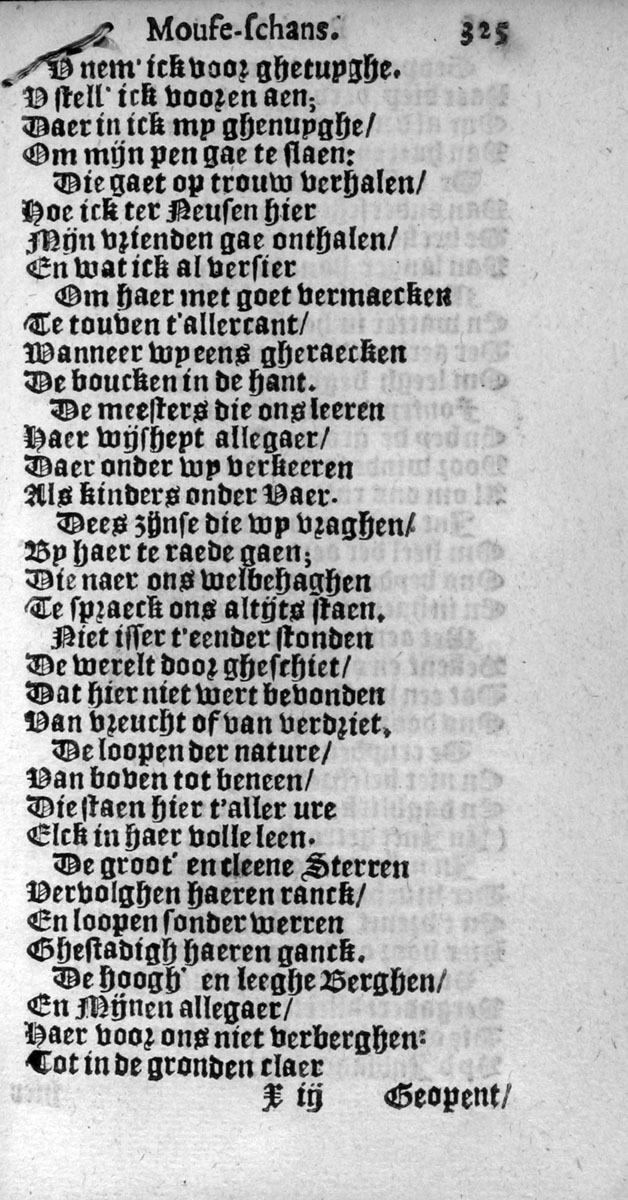 Mouse-schans. 325
V nem' ick voor ghetuyghe.
V stell' ick vooren aen;
Daer in ick my ghenuyghe/
Om mijn pen gae te slaen:
Die gaet op trouw verhalen/
Hoe ick ter Neusen hier
Mijn vrienden gae onthalen/
En wat ick al versier
Om haer met goet vermaecken
Te touven t'allercant/
Wanneer wy eens gheraecken
De boucken in de hant.
De meesters die ons leeren
Haer wijsheyt allegaer/
Daer onder wy verkeeren
Als kinders onder Vaer.
Dees zijnse die wy vraghen/
By haer te raede gaen;
Die naer ons welbehaghen
Te spraeck ons altijts staen.
Niet isser t'eender stonden
De werelt door gheschiet/
Dat hier niet wert bevonden
Van vreucht of van verdriet.
De loopen der nature/
Van boven tot beneen/
Die staen hier t'aller ure
Elck in haer volle leen.
De groot' en cleene Sterren
Vervolghen haeren ranck/
En loopen sonder werren
Ghestadigh haeren ganck.
De hoogh' en leeghe Berghen/
En Mijnen allegaer/
Haer voor ons niet verberghen:
Tot in de gronden claer
X ij Geopent/